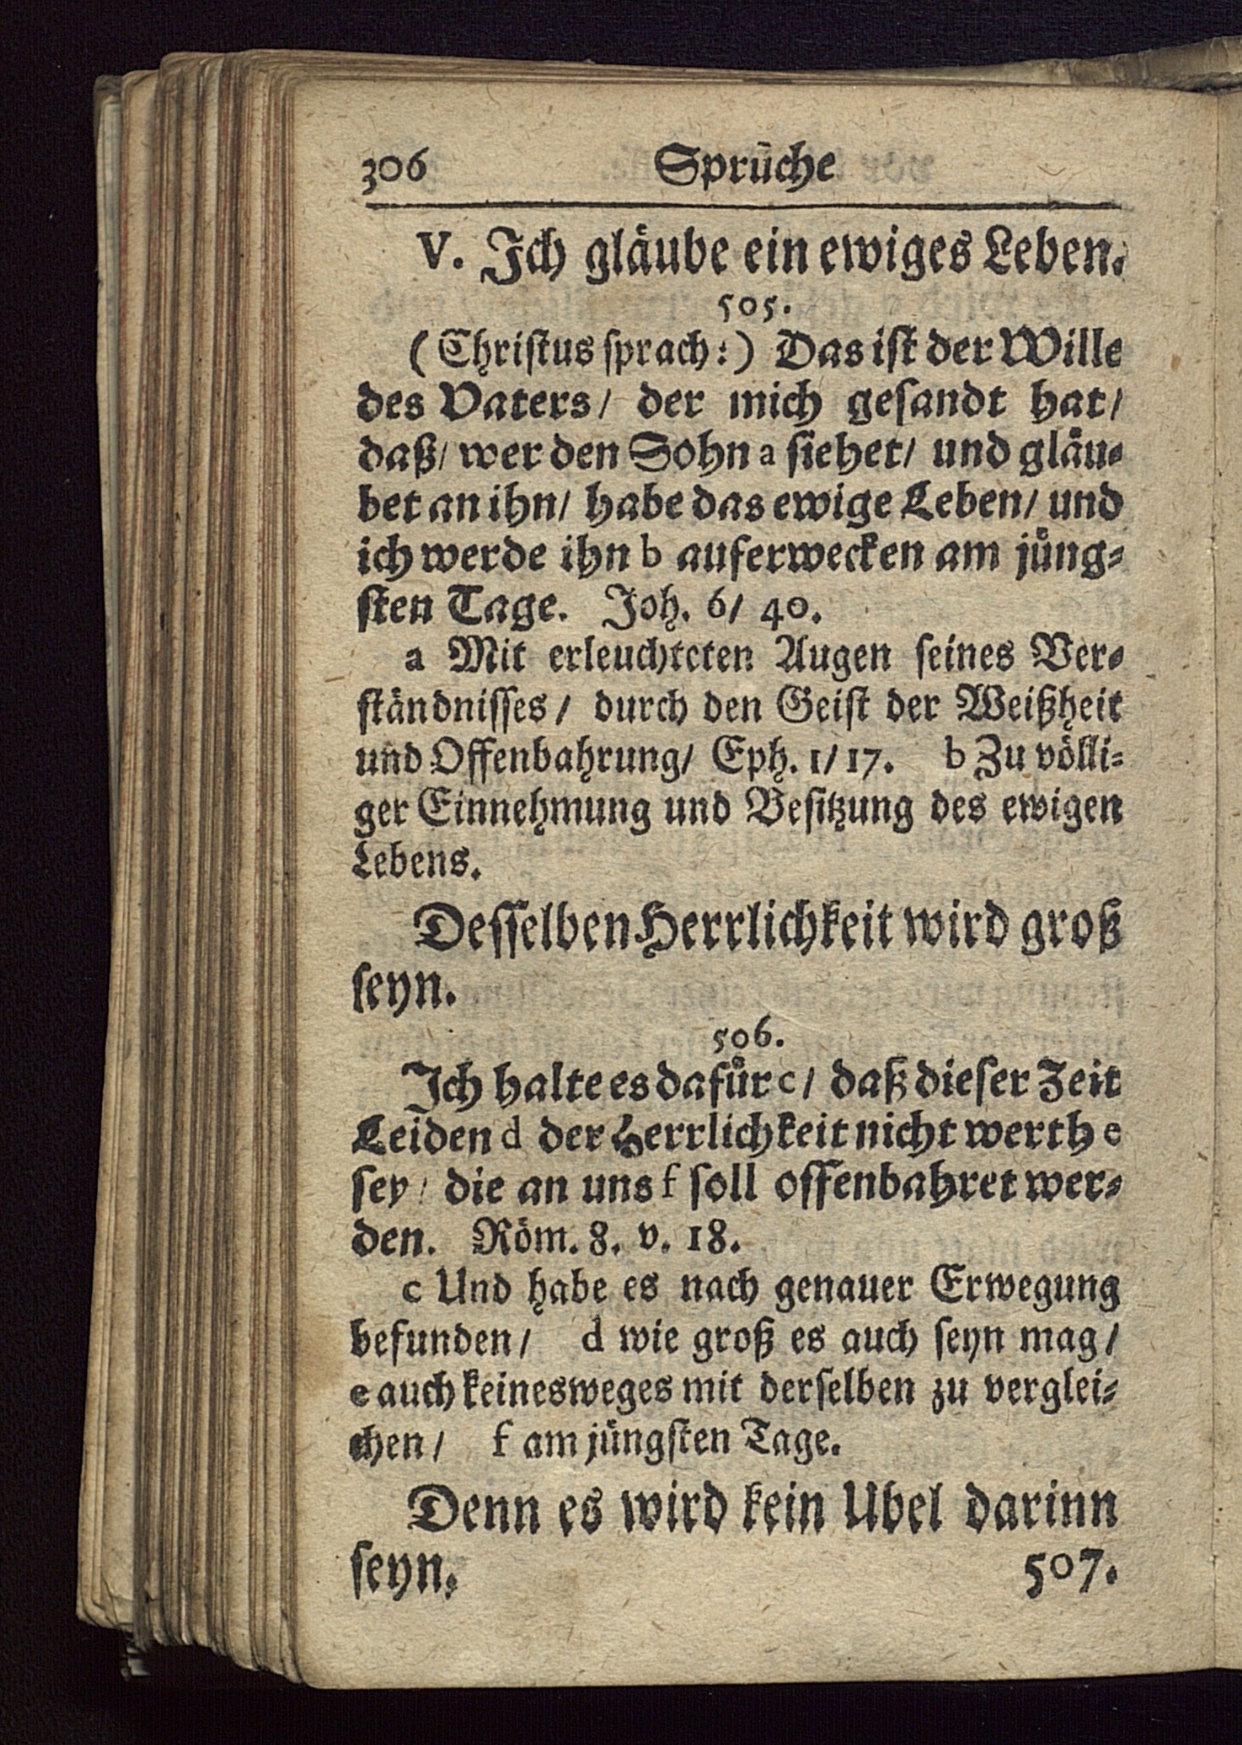 306 Sprüche
V. Ich gläube ein ewiges Leben.
505.
(Christus sprach:) Das ist der Wille
des Vaters/ der mich gesandt hat/
daß/ wer den Sohn a siehet/ und gläu-
bet an ihn/ habe das ewige Leben/ und
ich werde ihn b auferwecken am jüng-
sten Tage. Joh. 6/ 40.
a Mit erleuchteten Augen seines Ver-
ständnisses/ durch den Geist der Weißheit
und Offenbahrung/ Eph. 1/17. b Zu völli-
ger Einnehmung und Besitzung des ewigen
Lebens.
Desselben Herrlichkeit wird groß
seyn.
506.
Ich halte es dafür c/ daß dieser Zeit
Leiden d der Herrlichkeit nicht werth e
sey/ die an uns f soll offenbahret wer-
den. Röm. 8. v. 18.
c Und habe es nach genauer Erwegung
befunden/ d wie groß es auch seyn mag/
e auch keinesweges mit derselben zu verglei-
chen/ f am jüngsten Tage.
Denn es wird kein Ubel darinn
seyn. 507.